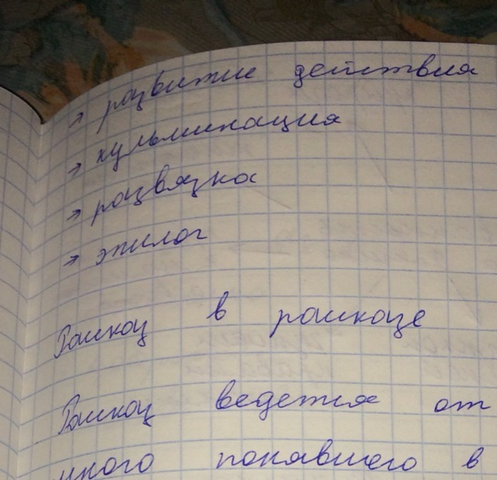 → развитие действия
→ кульминация
→ развязка
→ эпилог
Рассказ в рассказе
Рассказ ведется от
иного попавшего в